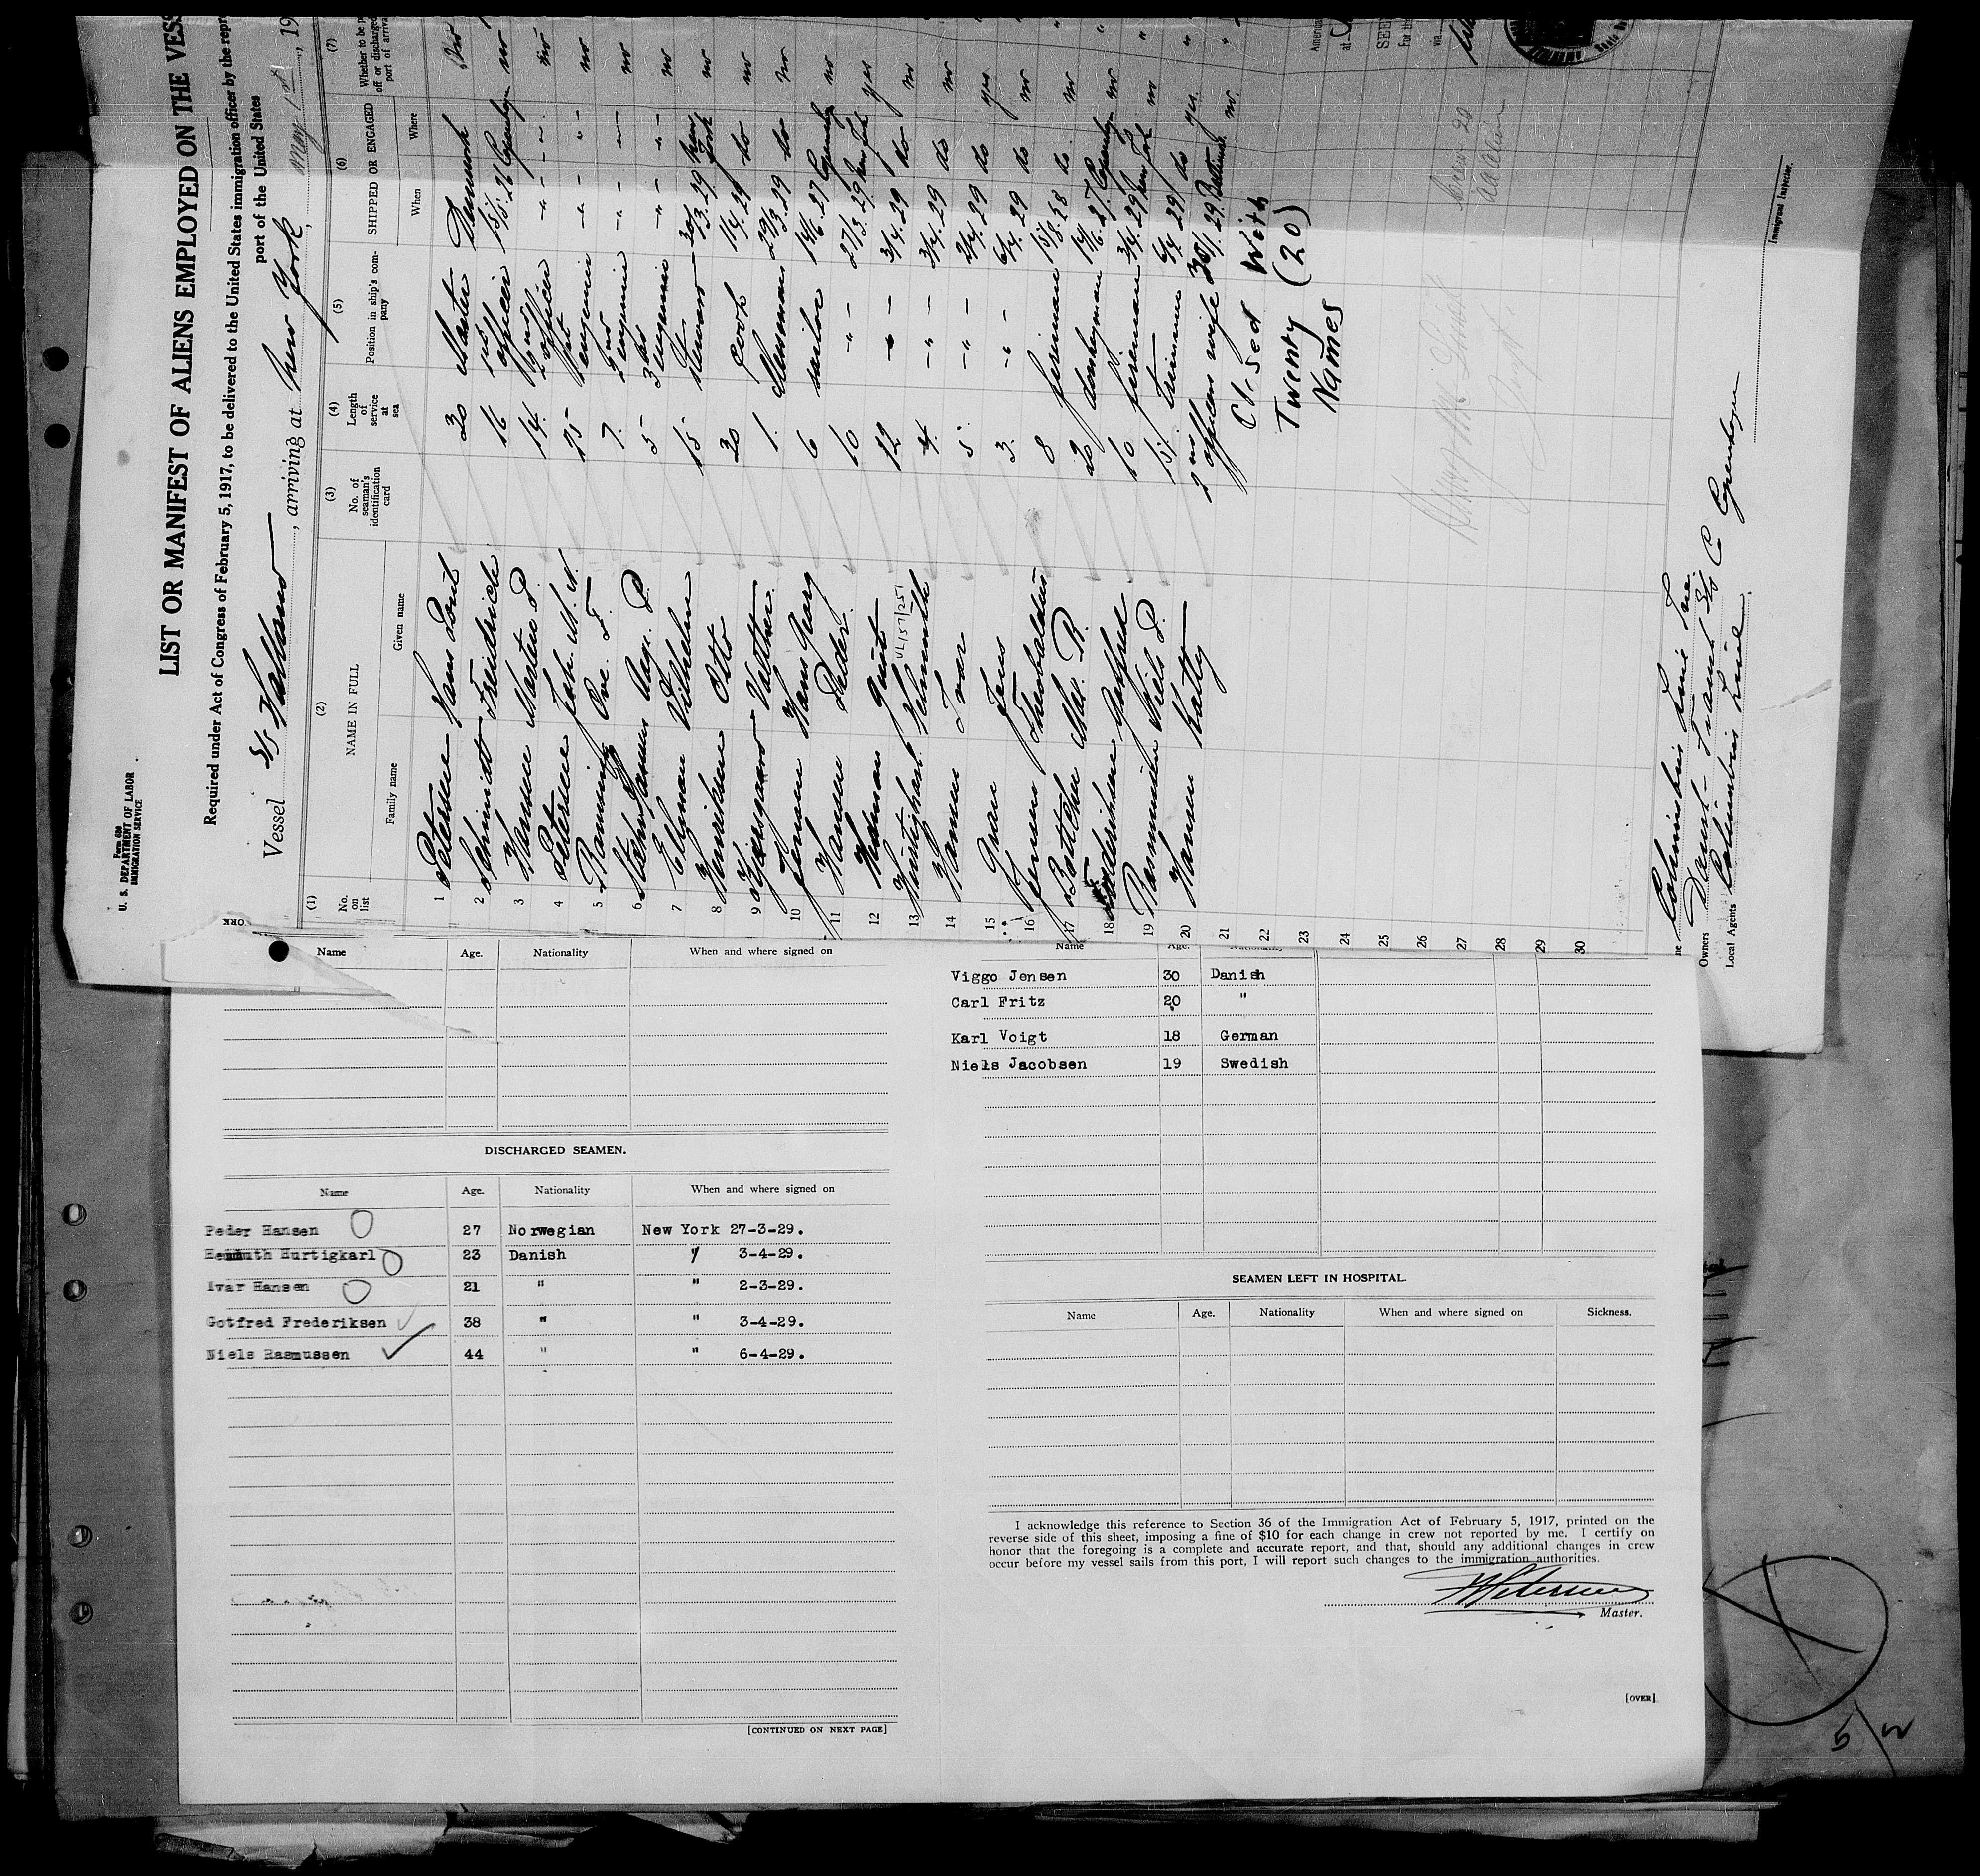 Form 680
U. S. DEPARTMENT OF LABOR
IMMIGRATION SERVICE
LIST OR MANIFEST OF ALIENS EMPLOYED ON THE VESS
Required under Act of Congress of February 5, 1917, to be delivered to the United States immigration officer by the repr
port of the United States
Vessel S/S Halland, arriving at New York, May 1st, 19
(1) (2) (3) (4) (5) (6) (7)
No. on list NAME IN FULL No. of seaman's identification card Length of service at sea Position in ship's company SHIPPED OR ENGAGED Whether to be p off or discharged port of arriva
Family name Given name When Where
1 Petersen Hans 30 Master Denmark
2 Schmidt Friedrich 16 1st officer 15/5. 26 Copenhagen no
3 Hansen Marten P. 14 2nd officer no
4 Petersen Joh. M. N. 25 1st engineer no
5 Ramming Ove. F. 7. 2nd engineer no
6 Aage. P. 5 3rd engineer no
7 Ehlman Vilhelm 15 Steward 30/3. 29 New York no
8 Henriksen Otto 20 Cook 1/4. 29 do no
9 Kjærsgaard Walther 1. Messman 29/3. 29 do no
10 Jensen Hans Georg 6 sailor 14/6. 27 Copenhagen no
11 Hansen Peder 10 27/3. 29 New York yes
12 Hedman 12 3/4. 29 do no
13 Hurtigkarl Helmuth 4. 3/4. 29 do
14 Hansen Ivar 5. 2/4. 29 do yes
15 Gran Jens 3. 6/4. 29 do no
16 Jensen Theobaldus 8 fireman 15/8. 28 do no
17 Bøttcher Max. R. 20 donkeyman 14/6. 27 Copenhagen no
18 Frederiksen Gotfred 10 fireman 3/4. 29 New York
19 Rasmussen Niels P. 15. trimmer 6/4. 29 do yes
20 Hansen Katty 2nd officers wife 30/1. 29. Baltimore no.
21
22
23
24
25
26
27
28
29
30
Closed with
Twenty (20)
Names
Crew 20
VL 157/251
Columbus Line Inc.
Owners
Local Agents Columbus Line
Copenhagen
Immigrant Inspector.
Name Age. Nationality When and where signed on
DISCHARGED SEAMEN.
Name Age. Nationality When and where signed on
Peder Hansen 27 Norwegian New York 27-3-29.
Helmuth Hurtigkarl 23 Danish " 3-4-29.
Ivar Hansen 21 " " 2-3-29.
Gotfred Frederiksen 38 " " 3-4-29.
Niels Rasmussen 44 " " 6-4-29.
[CONTINUED ON NEXT PAGE]
Name Age. Nationality
Viggo Jensen 30 Danish
Carl Fritz 20 "
Karl Voigt 18 German
Niels Jacobsen 19 Swedish
SEAMEN LEFT IN HOSPITAL.
Name Age. Nationality When and where signed on Sickness.
I acknowledge this reference to Section 36 of the Immigration Act of February 5, 1917, printed on the
reverse side of this sheet, imposing a fine of $10 for each change in crew not reported by me. I certify on
honor that the foregoing is a complete and accurate report, and that, should any additional changes in crew
occur before my vessel sails from this port, I will report such changes to the immigration authorities.
HPetersen
Master.
[OVER]
5/2